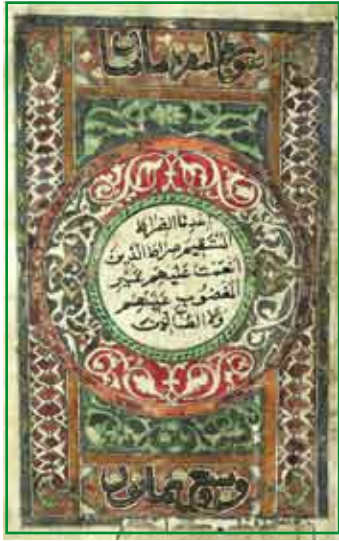 سورة البقرة مائتان
اهدنا الصراط
المستقيم صراط الذين
انعمت عليهم غير
المغضوب عليهم
ولا الضالين
وسبع